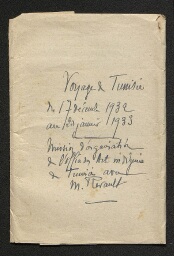 Voyage de Tunisie
du 17 décembre 1932
au janvier 1933
Mission d'organisation
de l'Office des Arts indigènes
de Tunisie avec
M. Revault